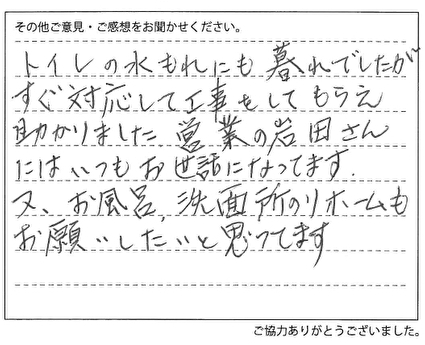 その他ご意見・ご感想をお聞かせください。
トイレの水もれにも暮れでしたが
すぐ対応して工事をしてもらえ
助かりました 営業の岩田さん
にはいつもお世話になってます.
又、お風呂,洗面所のリホームも
お願いしたいと思ってます
ご協力ありがとうございました。